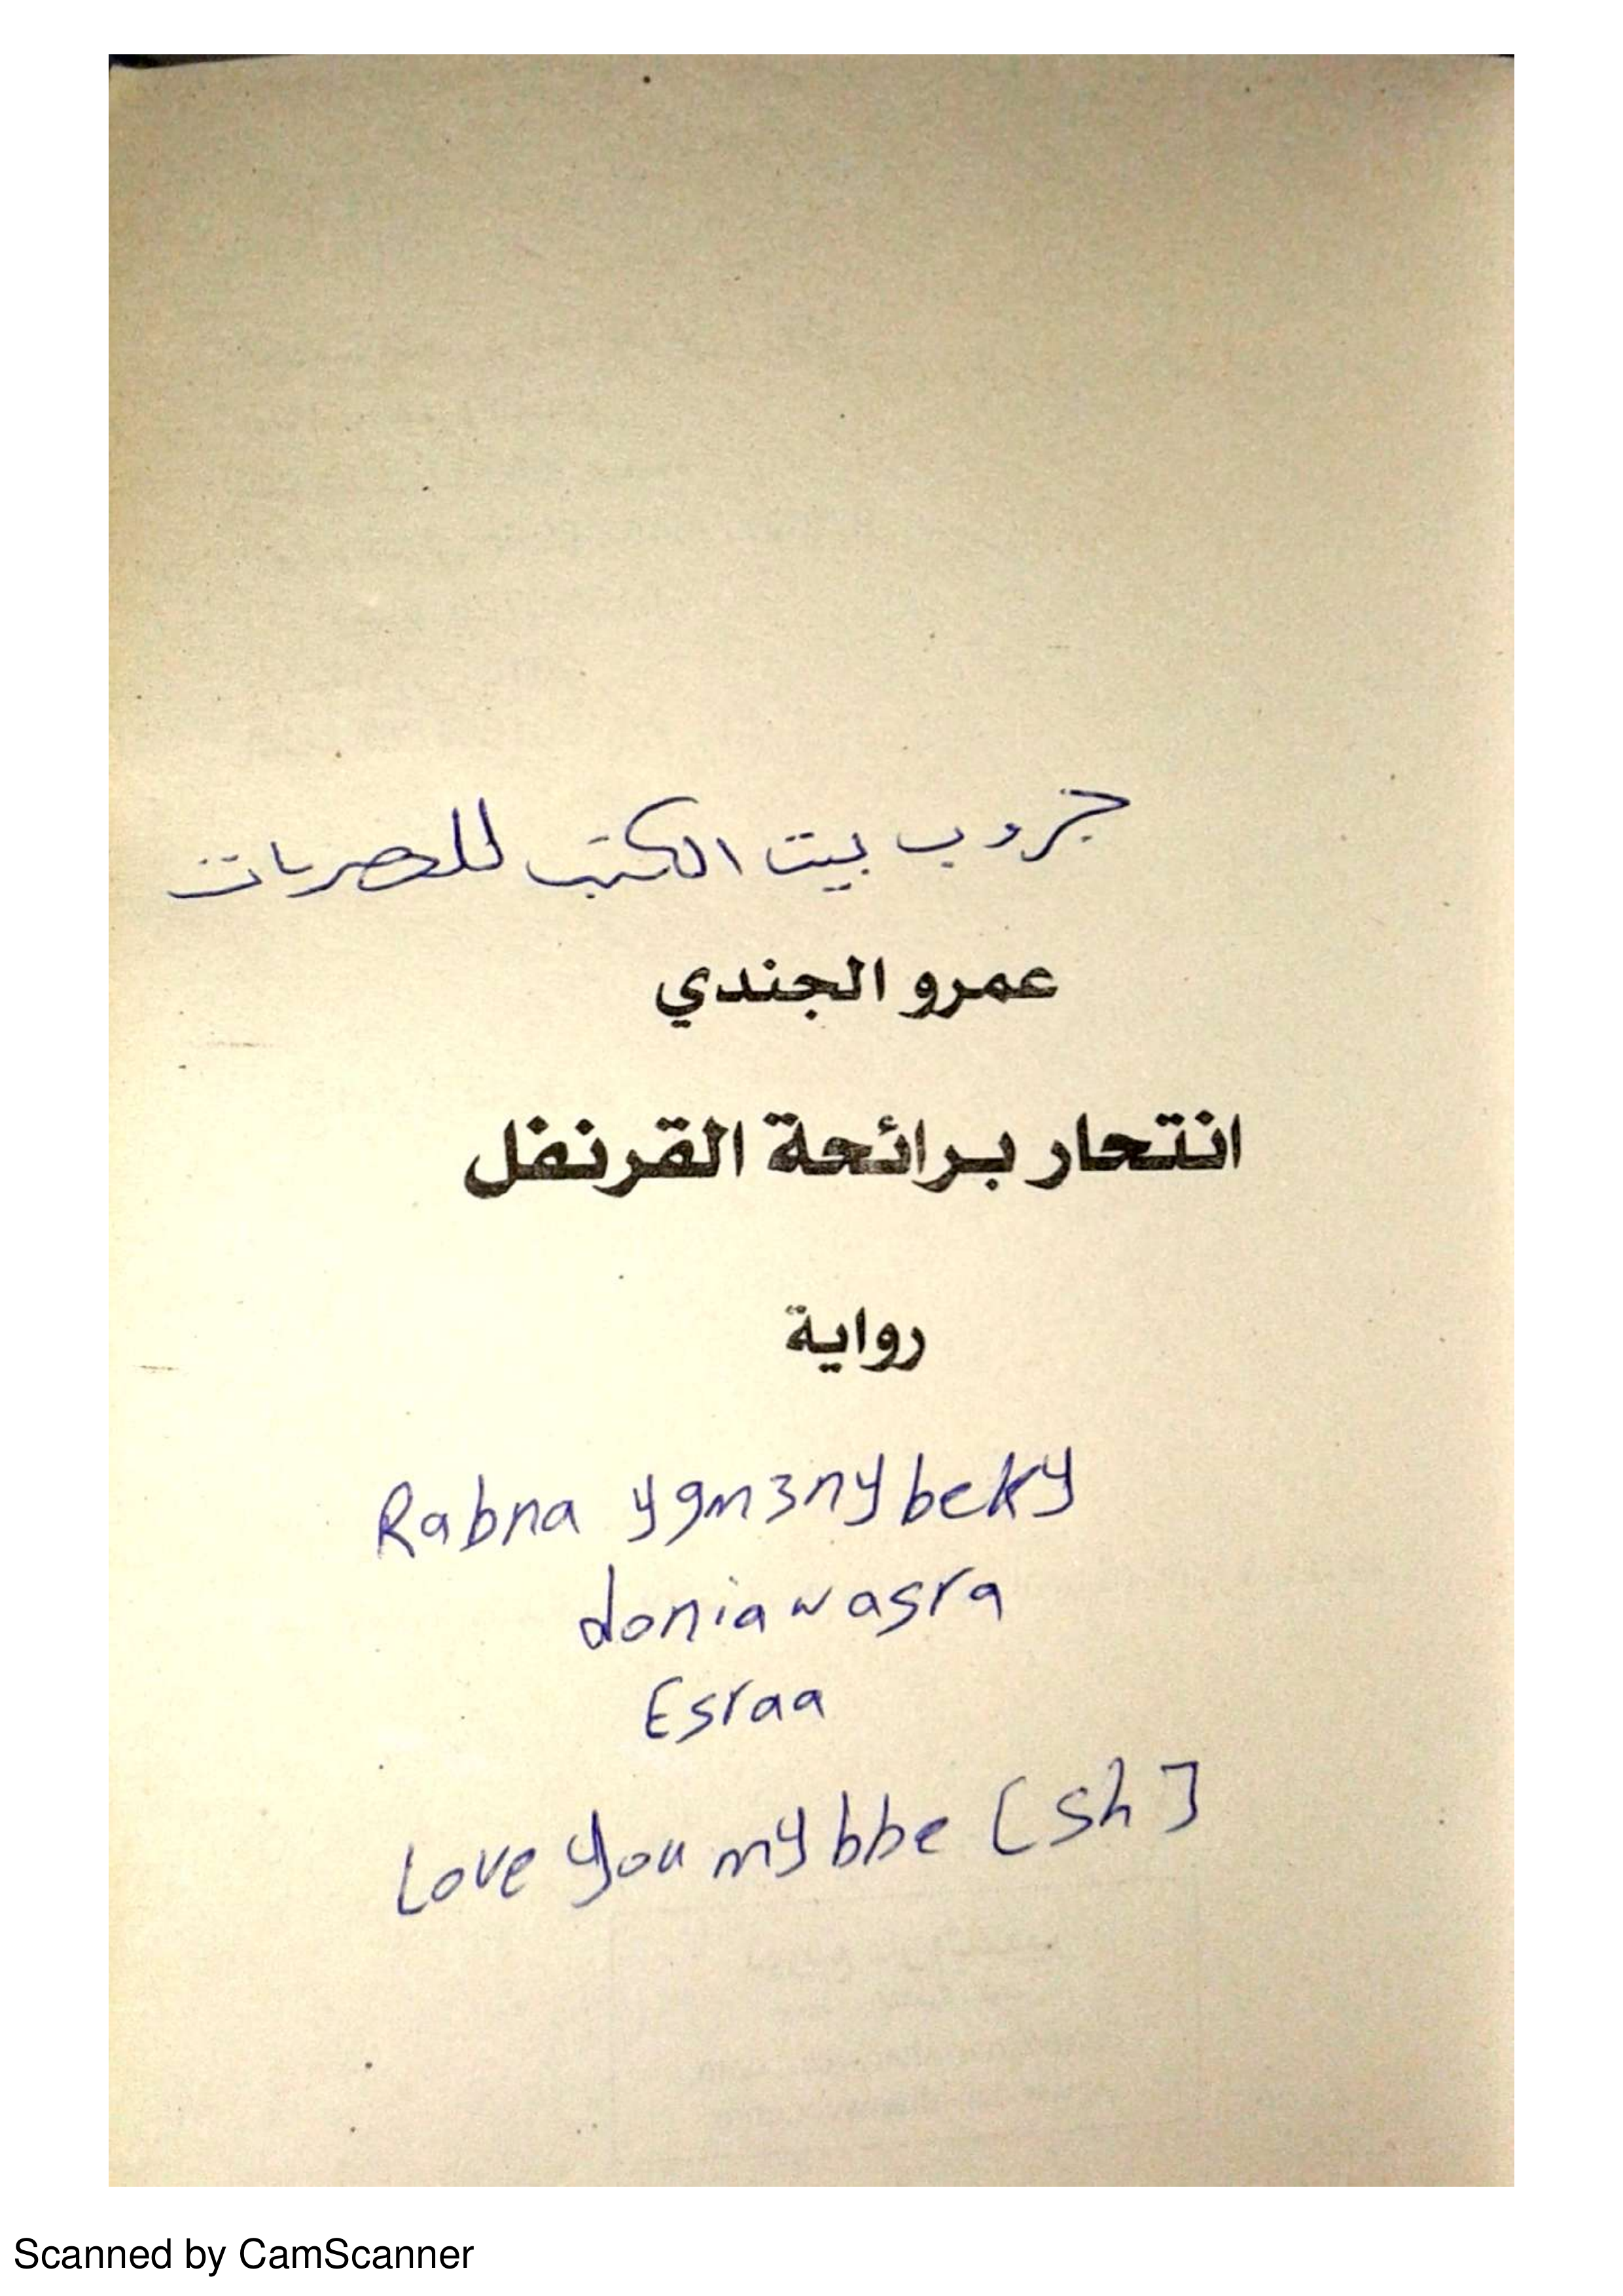 جروب بيت الكتب للحصريات
عمرو الجندي
انتحار برائحة القرنفل
رواية
Rabna ygm3ny beky
donia w asra
Esraa
Love you my bbe [sh]
Scanned by CamScanner